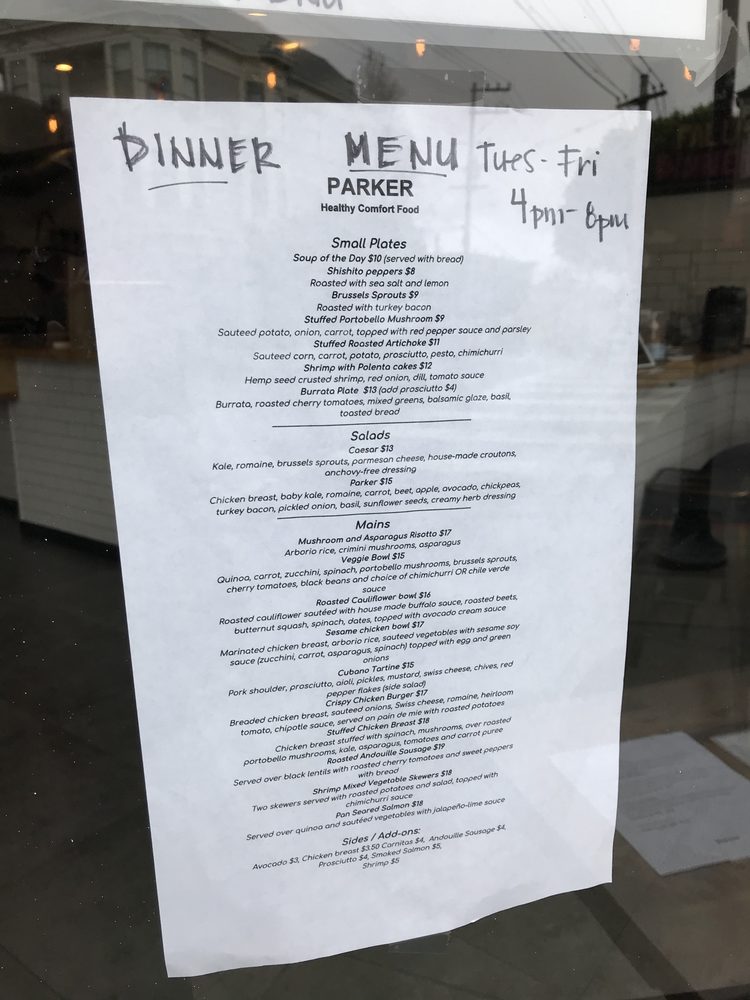 DINNER MENU Tues - Fri
4pm - 8pm
PARKER
Healthy Comfort Food
Small Plates
Soup of the Day $10 (served with bread)
Shishito peppers $8
Roasted with sea salt and lemon
Brussels Sprouts $9
Roasted with turkey bacon
Stuffed Portobello Mushroom $9
Sauteed potato, onion, carrot, topped with red pepper sauce and parsley
Stuffed Roasted Artichoke $11
Sauteed corn, carrot, potato, prosciutto, pesto, chimichurri
Shrimp with Polenta cakes $12
Hemp seed crusted shrimp, red onion, dill, tomato sauce
Burrata Plate $13 (add prosciutto $4)
Burrata, roasted cherry tomatoes, mixed greens, balsamic glaze, basil,
toasted bread
Salads
Caesar $13
Kale, romaine, brussels sprouts, parmesan cheese, house-made croutons,
anchovy-free dressing
Parker $15
Chicken breast, baby kale, romaine, carrot, beet, apple, avocado, chickpeas,
turkey bacon, pickled onion, basil, sunflower seeds, creamy herb dressing
Mains
Mushroom and Asparagus Risotto $17
Arborio rice, crimini mushrooms, asparagus
Veggie Bowl $15
Quinoa, carrot, zucchini, spinach, portobello mushrooms, brussels sprouts,
cherry tomatoes, black beans and choice of chimichurri OR chile verde
sauce
Roasted Cauliflower bowl $16
Roasted cauliflower sautéed with house made buffalo sauce, roasted beets,
butternut squash, spinach, dates, topped with avocado cream sauce
Sesame chicken bowl $17
Marinated chicken breast, arborio rice, sauteed vegetables with sesame soy
sauce (zucchini, carrot, asparagus, spinach) topped with egg and green
onions
Cubano Tartine $15
Pork shoulder, prosciutto, aioli, pickles, mustard, swiss cheese, chives, red
pepper flakes (side salad)
Crispy Chicken Burger $17
Breaded chicken breast, sauteed onions, Swiss cheese, romaine, heirloom
tomato, chipotle sauce, served on pain de mie with roasted potatoes
Stuffed Chicken Breast $18
Chicken breast stuffed with spinach, mushrooms, over roasted
portobello mushrooms, kale, asparagus, tomatoes and carrot puree
Roasted Andouille Sausage $19
Served over black lentils with roasted cherry tomatoes and sweet peppers
with bread
Shrimp Mixed Vegetable Skewers $18
Two skewers served with roasted potatoes and salad, topped with
chimichurri sauce
Pan Seared Salmon $18
Served over quinoa and sautéed vegetables with jalapeño-lime sauce
Sides / Add-ons:
Avocado $3, Chicken breast $3.50 Carnitas $4, Andouille Sausage $4,
Prosciutto $4, Smoked Salmon $5,
Shrimp $5